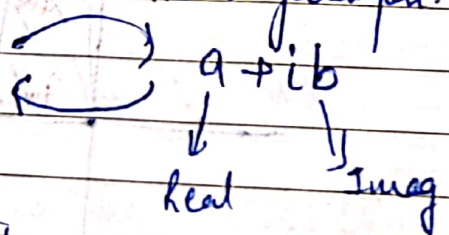 a + ib
Real Imag